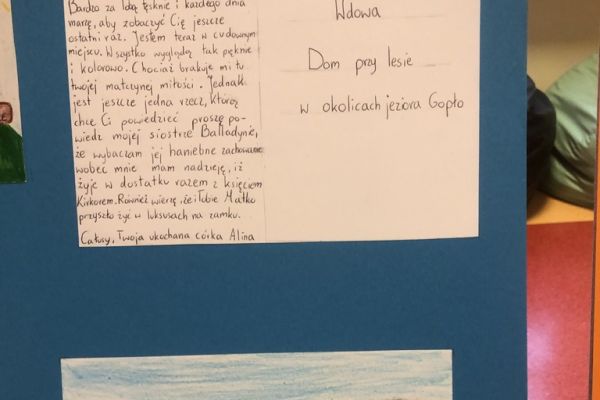 Bardzo za Tobą tęsknię i każdego dnia
marzę, aby zobaczyć Cię jeszcze
ostatni raz. Jestem teraz w cudownym
miejscu. Wszystko wygląda tak pięknie
i kolorowo. Chociaż brakuje mi tu
twojej matczynej miłości. Jednak
jest jeszcze jedna rzecz, którą
chcę Ci powiedzieć proszę po-
wiedz mojej siostrze Balladynie,
że wybaczam jej haniebne zachowanie
wobec mnie mam nadzieję, iż
żyje w dostatku razem z księciem
Kirkorem. Również wierzę, że i Tobie Matko
przyszło żyć w luksusach na zamku.
Całusy, Twoja ukochana córka Alina
Wdowa
Dom przy lesie
w okolicach jeziora Gopło